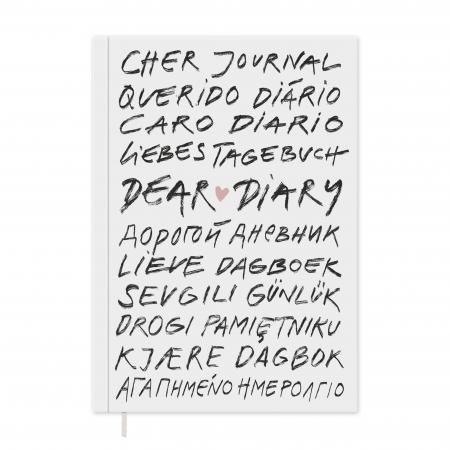 CHER JOURNAL
QUERIDO DIÁRIO
CARO DIARIO
LIEBES TAGEBUCH
DEAR DIARY
ДОРОГОЙ ДНЕВНИК
LIEVE DAGBOEK
SEVGILI GÜNLÜK
DROGI PAMIĘTNIKU
KJÆRE DAGBOK
ΑΓΑΠΗΜΕΝΟ ΗΜΕΡΟΛΓΙΟ